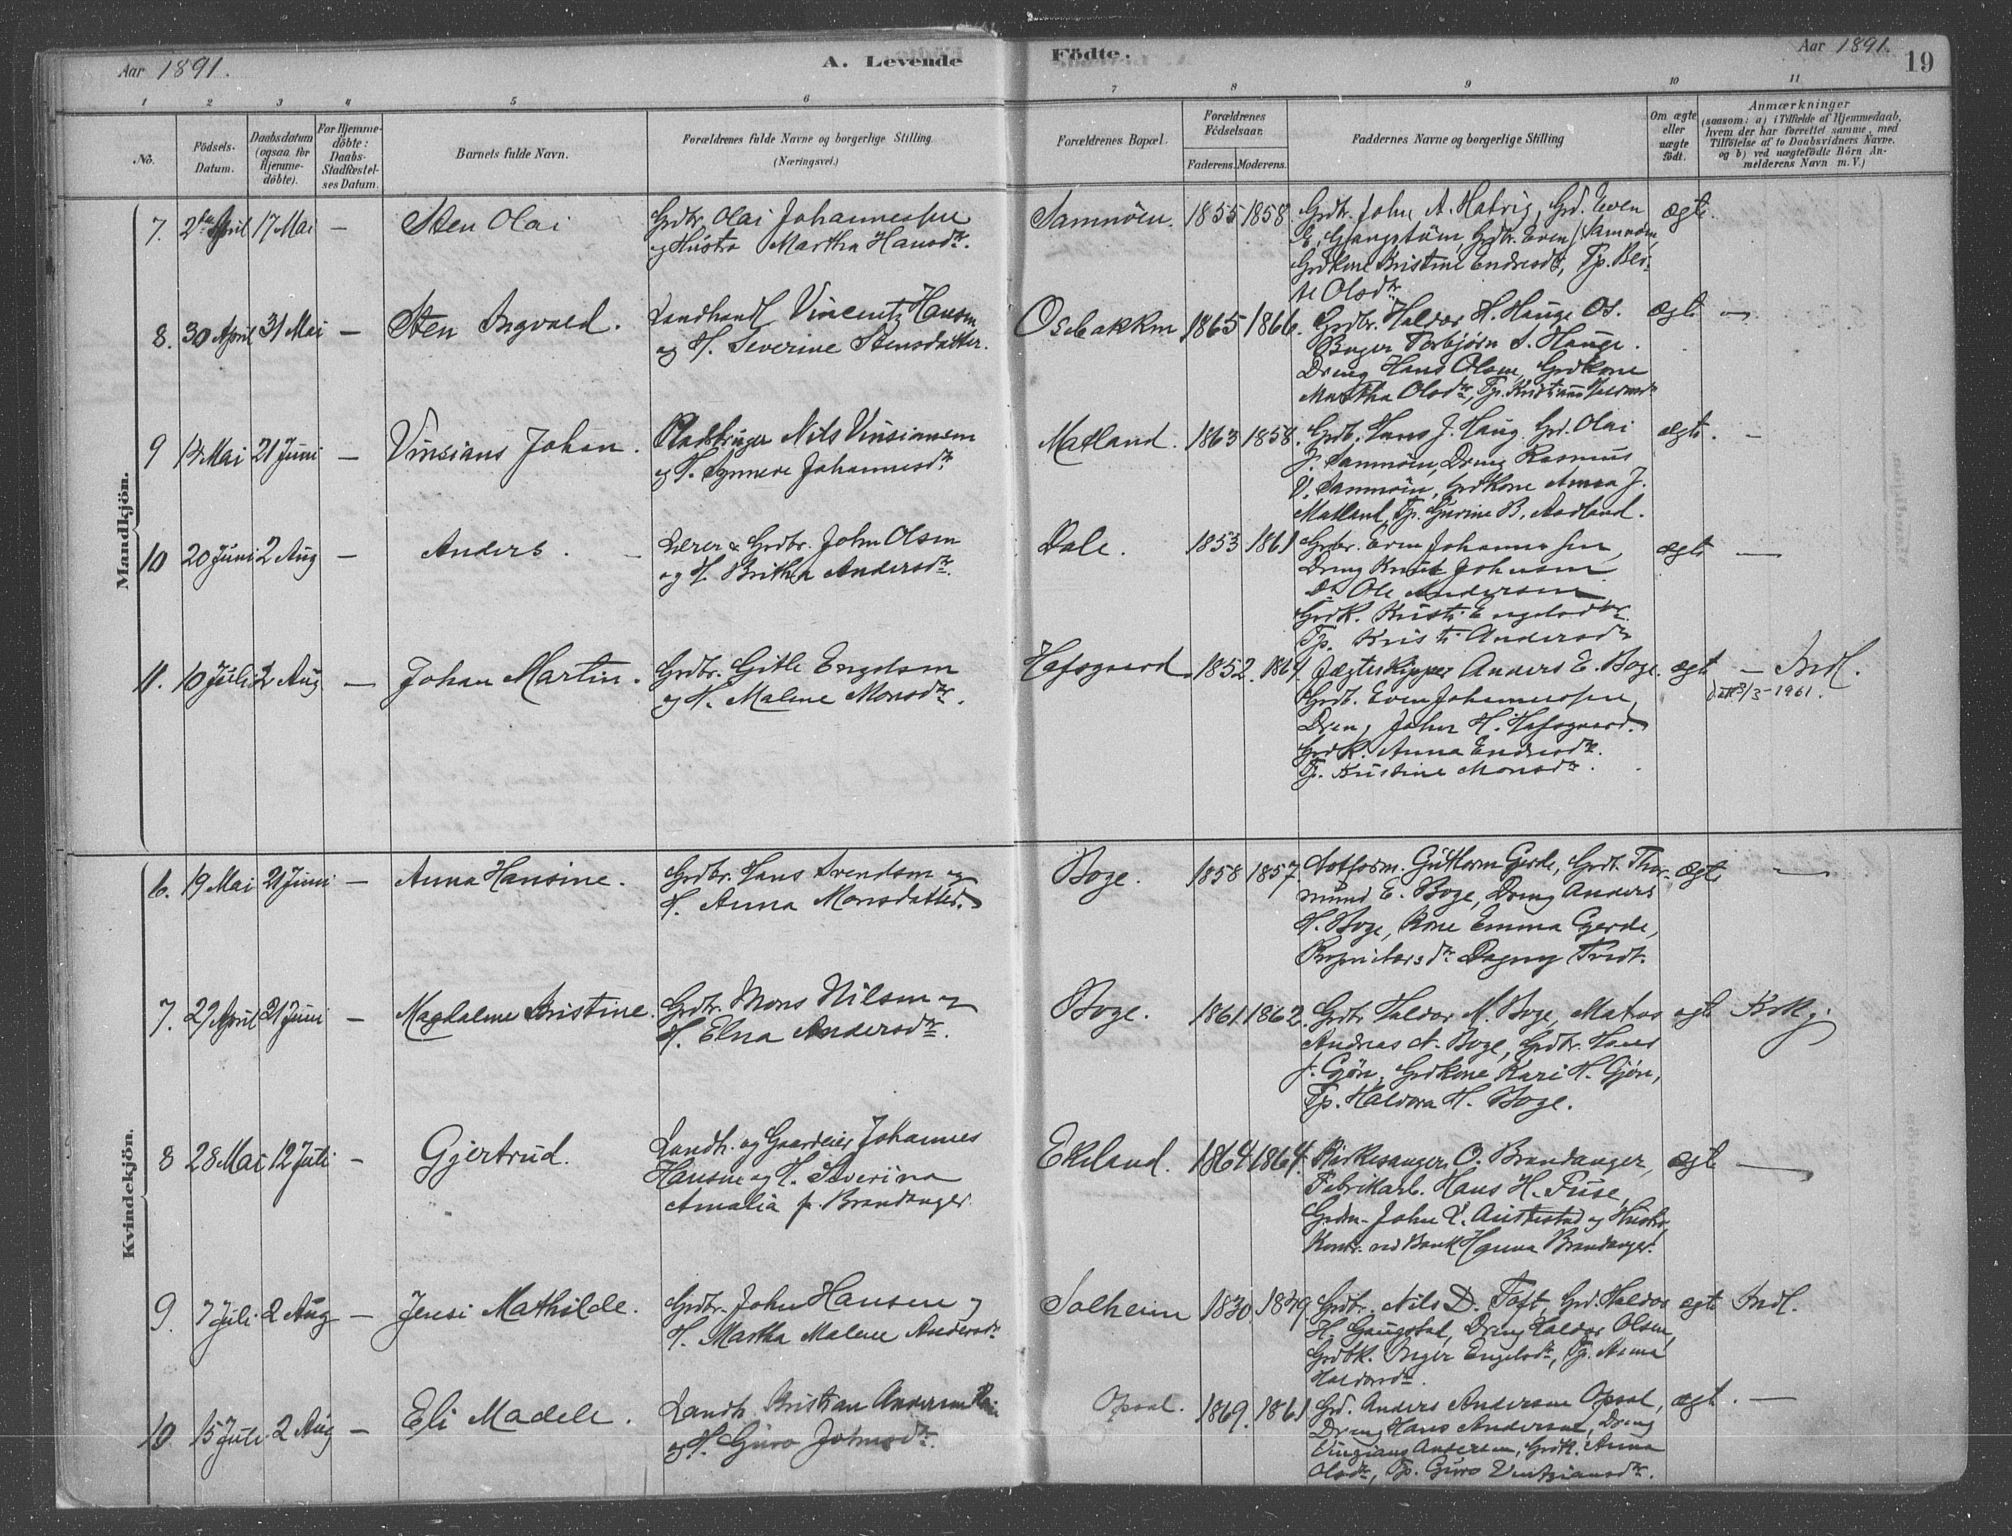 Aar 1891. A. Levende Födte. Aar 1891. 19
1 2 3 4 5 6 7 8 9 10 11
No.
Födsels-
Datum.
Daabsdatum
(ogsaa for
Hjemme-
döbte).
For Hjemme-
döbte:
Daabs-
Stadfæstel-
ses Datum.
Barnets fulde Navn.
Forældrenes fulde Navne og borgerlige Stilling
(Næringsvei.)
Forældrenes Bopæl.
Forældrenes
Födselsaar.
Faderens. Moderens.
Faddernes Navne og borgerlige Stilling
Om ægte
eller
uægte
født.
Anmærkninger
(saasom: a) i Tilfælde af Hjemmedaab,
hvem der har forrettet samme, med
Tilföielse af to Daabsvidners Navne,
og b) ved uægtefödte Börn An-
melderens Navn m. V.)
Mandkjön.
7. April 17 Mai —
Sten Olai
Grdbr. Olai Johannessen
og Hustro Martha Hansdr.
Samnöen.
1855 1858
Grdbr. John A. Hatvig, Grd. Even
E. Gjangstöm, Grdbr. Even J. Samnöen,
Grdkone Kristine Endresdr, Tp. Ber-
te Olsdr.
ægte.
8. 30 April 31 Mai —
Sten Ingvald.
Landhandl Vincentz Hansen
og H. Severine Stensdatter.
Osebakken
1865 1866.
Grdbr. Haldor H. Hauge Os.
Torbjörn S. Hauge.
Dreng Hans Olsen, Grdkone
Martha Olsdr, Tp.
ægte —
9 14 Mai 21 Juni —
Vinsians Johan.
Pladsbruger Nils Vinsiansen
og H. Synneve Johannesdr.
Matland.
1863 1858.
Grdb. Hans J. Haug, Grd. Olai
J. Samnöen, Dreng Rasmus
V. Samnöen, Grdkone Anna J.
Matland, Tp. Gurine B. Aadland.
ægte. —
10 20 Juni 2 Aug —
Anders.
Lærer & Grdbr. John Olsen
og H. Britha Andersdr.
Dale.
1853 1861
Grdbr. Even Johannessen,
Dreng Knut Johnsen
Do Ole Andersen
Grdk. Kristi Engelsdtr.
Tp. Kristi Andersdr
ægte —
11. 10 Juli 2 Aug —
Johan Martin.
Grdbr. Gitle Engelsen
og H. Malene Monsdtr.
Hafsgaard
1852. 1864.
Jægteskipper Anders E. Boge.
Grdb. Even Johannessen,
Dreng John H. Hafsgaard.
Grdk. Anna Endresdr.
Tp. Kristine Monsdr.
ægte — Indl.
/3-1961.
Kvindekjön.
6. 19 Mai 21 Juni —
Anna Hansine.
Grdbr. Hans Svendsen og
H. Anna Monsdatter.
Boge.
1858 1857.
Guttorm Gjerde, Grdb. Thor-
mund E. Boge, Dreng Anders
H. Boge, Kone Emma Gjerde,
Proprietærsdr Dagny Tvedt.
ægte —
7. 29 April 21 Juni —
Magdalene Kristine.
Grdbr. Mons Nilsen og
H. Elna Andersdr.
Boge.
1861 1862.
Grdbr Haldor N. Boge, Matros
Andreas N. Boge, Grdbr. Hans
J. Gjön, Grdkone Kari H. Gjön,
Tp. Haldora H. Boge.
ægte
8 28 Mai 12 Juli —
Gjertrud.
Landh. og Gaardeier Johannes
Hansen og H. Severina
Amalia f. Brandanger.
Ekeland.
1864 1864.
Kirkesanger O. Brandanger,
Fabrikarb. Hans H. Fuse,
Grdm. John V. Austestad og Hustro,
Kontr. ved Bank Hanna Brandanger.
ægte —
9. 7 Juli 2 Aug —
Jensi Mathilde.
Grdbr. John Hansen og
H. Martha Malene Andersdr.
Solheim
1830. 1849.
Grdbr. Nils D. Toft, Grd. Haldor
H. Gaugstad, Dreng Haldor Olsen,
Grdbk. Inger Engelsdr, Tp. Anna
Haldorsdr.
ægte Indl.
10 15 Juli 2 Aug —
Eli Madele.
Landh. Kristian Andersen
og H. Guro Johnsdr.
Opsal.
1869. 1861
Grd. Anders Andersen Opsal,
Dreng Hans Andersen, Dreng
Andersen, Grdk. Anna
Olsdr, Tp. Guro Vintziansdr.
ægte. —